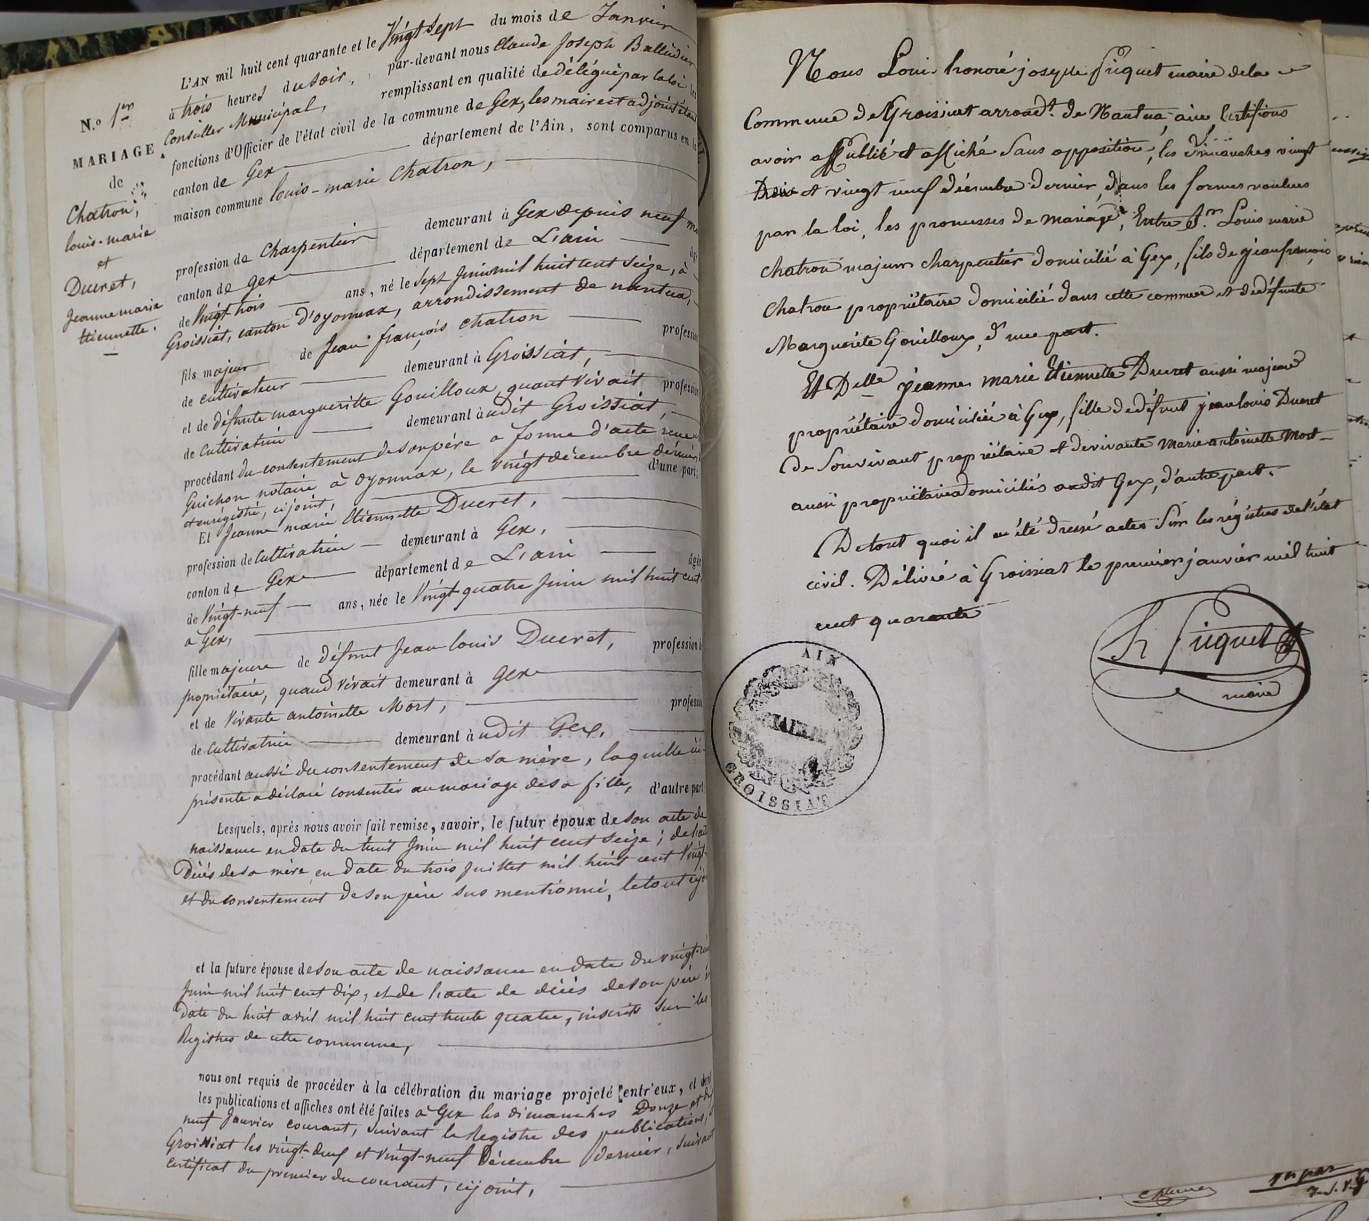 N.º 1er
MARIAGE
de
Chatron,
louis-marie
et
Ducret,
Jeanne marie
Etiennette.
L'AN mil huit cent quarante et le Vingt sept du mois de Janvier
à trois heures du soir, par-devant nous Claude Joseph
Conseiller Municipal, remplissant en qualité de délégué par la loi les
fonctions d'Officier de l'état civil de la commune de Gex, les maire et adjoint
canton de Gex département de l'Ain, sont comparus en la
maison commune louis-marie Chatron,
profession de Charpentier demeurant à Gex depuis neuf
canton de gex département de L'ain
de Vingt trois ans, né le Sept Juin mil huit cent Seize, à
Groissiat, canton d'oyonnax, arrondissement de nantua,
fils majeur de Jean françois Chatron
de cultivateur demeurant à Groissiat,
et de défunte margueritte Gouilloux, quand vivait
de Cultivatrice demeurant à udit Groissiat,
procédant du consentement de son père à forme d'acte
Guichon notaire à oyonnax, le vingt décembre dernier
et enregistré, ci joint, d'une part;
Et Jeanne marie Etiennette Ducret,
profession de Cultivatrice demeurant à Gex,
canton de Gex département de L'ain
de Vingt-neuf ans, née le Vingt quatre Juin mil huit cent
à Gex,
fille majeure de défunt Jean Louis Ducret, profession
propriétaire, quand vivait demeurant à gex
et de Vivante antoinette Mort,
de Cultivatrice demeurant à udit Gex,
procédant aussi du consentement de sa mère, laquelle ici
présente a déclaré consentir au mariage de sa fille, d'autre part
Lesquels, après nous avoir fait remise, savoir, le futur époux de son acte de
naissance en date du huit Juin mil huit cent seize; de l'acte
Décès de sa mère, en date du trois Juillet mil huit cent Vingt-
et du consentement de son père sus mentionné, le tout
et la future épouse de son acte de naissance en date du vingt-
Juin mil huit cent dix, et de l'acte de décès de son père
Date du huit avril mil huit cent trente quatre, inscrits sur les
Registres de cette commune,
nous ont requis de procéder à la célébration du mariage projeté entr'eux, et
les publications et affiches ont été faites à Gex les dimanches Douze et
neuf Janvier courant, suivant le Registre des publications,
Groissiat les vingt-deux et vingt-neuf Décembre dernier, suivant
certificat du premier du courant, ci joint,
Nous Louis honoré joseph maire de la
Commune de Groissiat arrondt. de Nantua, ain Certifions
avoir Publié et affiché Sans opposition, les dimanches vingt
Deux et vingt neuf décembre dernier, dans les formes voulues
par la loi, les promesses de mariage, Entre Sr. Louis marie
Chatron majeur charpentier domicilié à Gex, fils de jean françois
Chatron propriétaire Domicilié dans cette commune et de défunte
Marguerite Gouilloux, d'une part.
Et Delle jeanne marie Etiennette Ducret aussi majeure
propriétaire domiciliée à Gex, fille de défunt jean louis Ducret
de Souvivant propriétaire et de vivante marie antoinette Mort
aussi propriétaire domiciliés audit Gex, d'autre part.
De tout quoi il a été dressé actes Sur les régistres de l'état
civil. Délivré à Groissiat le premier janvier mil huit
cent quarante
maire
AIN
MAIRIE
GROISSIAT